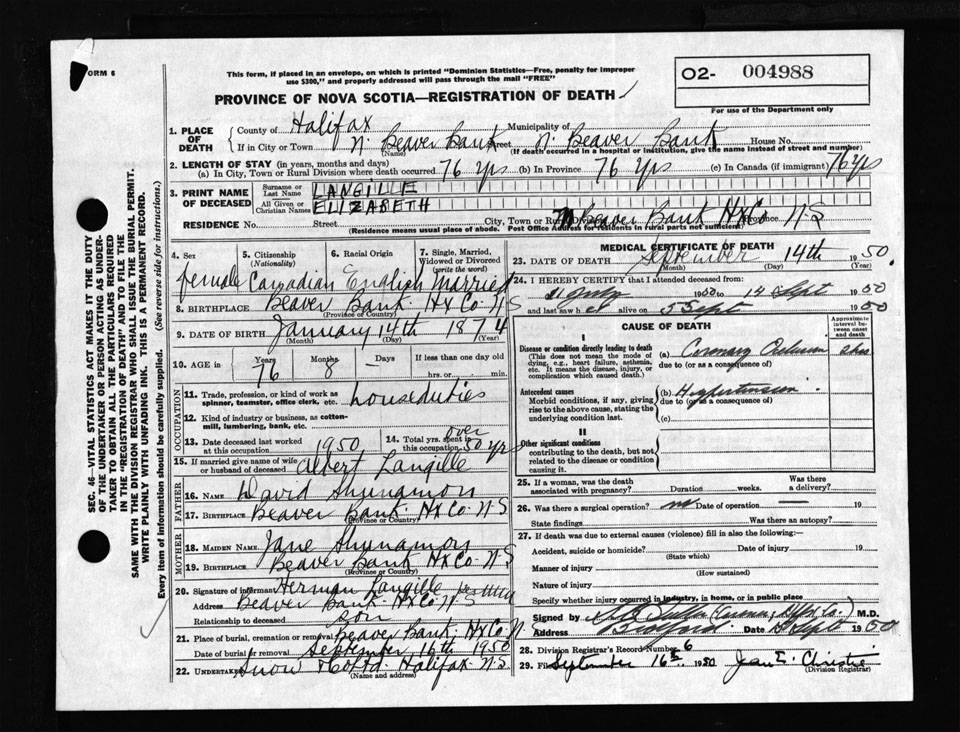 FORM 6
This form, if placed in an envelope, on which is printed "Dominion Statistics—Free, penalty for improper
use $300," and properly addressed will pass through the mail "FREE"
O2- 004988
For use of the Department only
PROVINCE OF NOVA SCOTIA—REGISTRATION OF DEATH
SEC. 46—VITAL STATISTICS ACT MAKES IT THE DUTY
OF THE UNDERTAKER OR PERSON ACTING AS UNDER-
TAKER TO OBTAIN ALL THE PARTICULARS REQUIRED
IN THE "REGISTRATION OF DEATH" AND TO FILE THE
SAME WITH THE DIVISION REGISTRAR WHO SHALL ISSUE THE BURIAL PERMIT.
WRITE PLAINLY WITH UNFADING INK. THIS IS A PERMANENT RECORD.
Every item of information should be carefully supplied. (See reverse side for instructions.)
1. PLACE OF DEATH
County of Halifax Municipality of
If in City or Town N. Beaver Bank Street N. Beaver Bank House No.
(Name) (If death occurred in a hospital or institution, give the name instead of street and number)
2. LENGTH OF STAY (in years, months and days)
(a) In City, Town or Rural Division where death occurred 76 yrs (b) In Province 76 yrs (c) In Canada (if immigrant) 76 yrs
3. PRINT NAME OF DECEASED
Surname or Last Name LANGILLE
All Given or Christian Names ELIZABETH
RESIDENCE No. Street City, Town or Rural N Beaver Bank Hx Co N-S
(Residence means usual place of abode. Post Office Address for residents in rural parts not sufficient)
4. Sex female
5. Citizenship (Nationality) Canadian
6. Racial Origin English
7. Single, Married, Widowed or Divorced (write the word) Married
8. BIRTHPLACE Beaver Bank Hx Co N-S
(Province or Country)
9. DATE OF BIRTH January 14th 1874
(Month) (Day) (Year)
10. AGE in Years 76 Months 8 Days — If less than one day old
hrs. or min.
OCCUPATION
11. Trade, profession, or kind of work as
spinner, teamster, office clerk, etc. houseduties
12. Kind of industry or business, as cotton-
mill, lumbering, bank, etc.
13. Date deceased last worked
at this occupation 1950
14. Total yrs. spent in
this occupation over 50 yrs
15. If married give name of wife
or husband of deceased Albert Langille
FATHER
16. NAME David
17. BIRTHPLACE Beaver Bank Hx Co. N-S
(Province or Country)
MOTHER
18. MAIDEN NAME Jane
19. BIRTHPLACE Beaver Bank Hx Co. N-S
(Province or Country)
20. Signature of informant Herman Langille
Address Beaver Bank Hx Co N-S
Relationship to deceased son
21. Place of burial, cremation or removal Beaver Bank, Hx Co. N-S
Date of burial or removal September 16th 1950
22. UNDERTAKER Snow & Co Ltd. Halifax N-S
(Name and address)
MEDICAL CERTIFICATE OF DEATH
23. DATE OF DEATH September 14th 1950.
(Month) (Day) (Year)
24. I HEREBY CERTIFY that I attended deceased from:
July 1950 to 14 Sept 1950
and last saw h er alive on 5 Sept 1950
CAUSE OF DEATH
Approximate interval between onset and death
I
Disease or condition directly leading to death (a) Coronary
(This does not mean the mode of due to (or as a consequence of)
dying, e.g., heart failure, asthenia,
etc. It means the disease, injury, or
complication which caused death.)
Antecedent causes (b) Hypertension
Morbid conditions, if any, giving due to (or as a consequence of)
rise to the above cause, stating the (c)
underlying condition last.
II
Other significant conditions
contributing to the death, but not
related to the disease or condition
causing it.
25. If a woman, was the death Was there
associated with pregnancy? Duration weeks. a delivery?
26. Was there a surgical operation? no Date of operation — 19
State findings Was there an autopsy?
27. If death was due to external causes (violence) fill in also the following:
Accident, suicide or homicide? Date of injury 19
(State which)
Manner of injury
(How sustained)
Nature of injury
Specify whether injury occurred in industry, in home, or in public place
Signed by M.D.
Address Bedford Date Sept 1950
28. Division Registrar's Record Number 6
29. Filed September 16th 1950 Jean E. Christie
(Division Registrar)